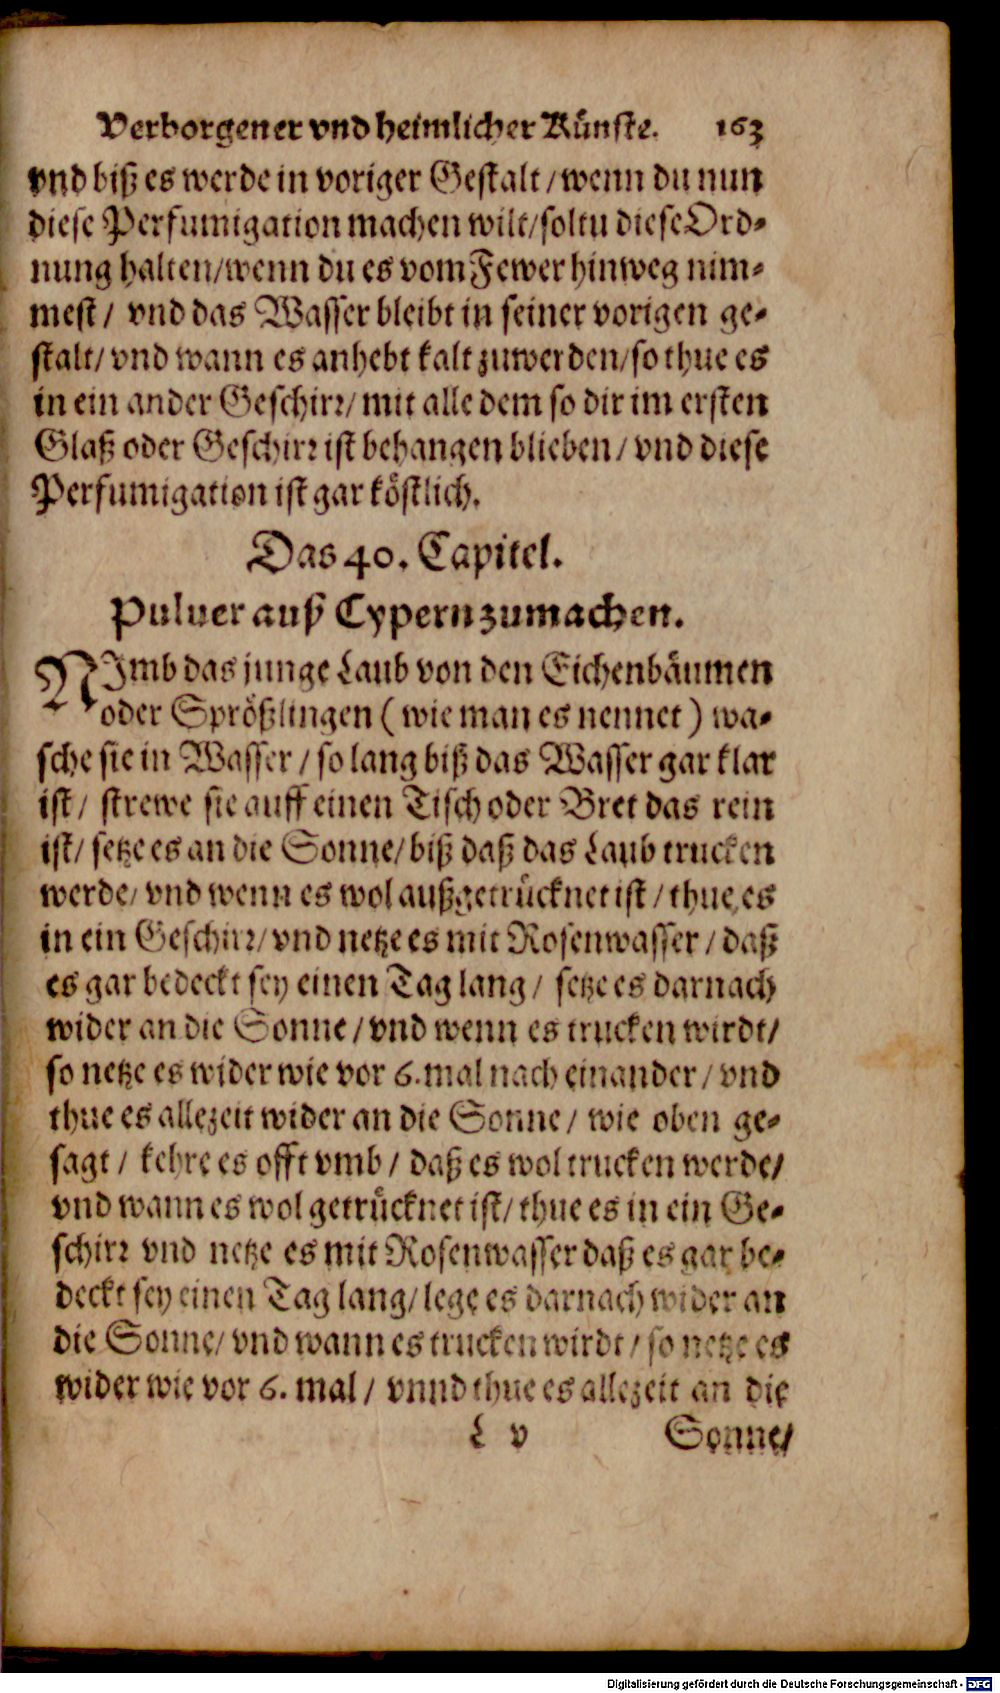 Verborgener vnd heimlicher Kuͤnste. 163
vnd biß es werde in voriger Gestalt / wenn du nun
diese Perfumigation machen wilt / soltu diese Ord-
nung halten / wenn du es vom Fewer hinweg nim-
mest / vnd das Wasser bleibt in seiner vorigen ge-
stalt / vnd wann es anhebt kalt zuwerden / so thue es
in ein ander Geschirꝛ / mit alle dem so dir im ersten
Glaß oder Geschirꝛ ist behangen blieben / vnd diese
Perfumigation ist gar koͤstlich.
Das 40. Capitel.
Puluer auß Cypern zumachen.
NImb das junge Laub von den Eichenbaͤumen
oder Sproͤßlingen ( wie man es nennet ) wa-
sche sie in Wasser / so lang biß das Wasser gar klar
ist / strewe sie auff einen Tisch oder Bret das rein
ist / setze es an die Sonne / biß daß das Laub trucken
werde / vnd wenn es wol außgetruͤcknet ist / thue es
in ein Geschirꝛ / vnd netze es mit Rosenwasser / daß
es gar bedeckt sey einen Tag lang / setze es darnach
wider an die Sonne / vnd wenn es trucken wirdt /
so netze es wider wie vor 6. mal nach einander / vnd
thue es allezeit wider an die Sonne / wie oben ge-
sagt / kehre es offt vmb / daß es wol trucken werde /
vnd wann es wol getruͤcknet ist / thue es in ein Ge-
schirꝛ vnd netze es mit Rosenwasser daß es gar be-
deckt sey einen Tag lang / lege es darnach wider an
die Sonne / vnd wann es trucken wirdt / so netze es
wider wie vor 6. mal / vnnd thue es allezeit an die
L v Sonne /
Digitalisierung gefördert durch die Deutsche Forschungsgemeinschaft - DFG